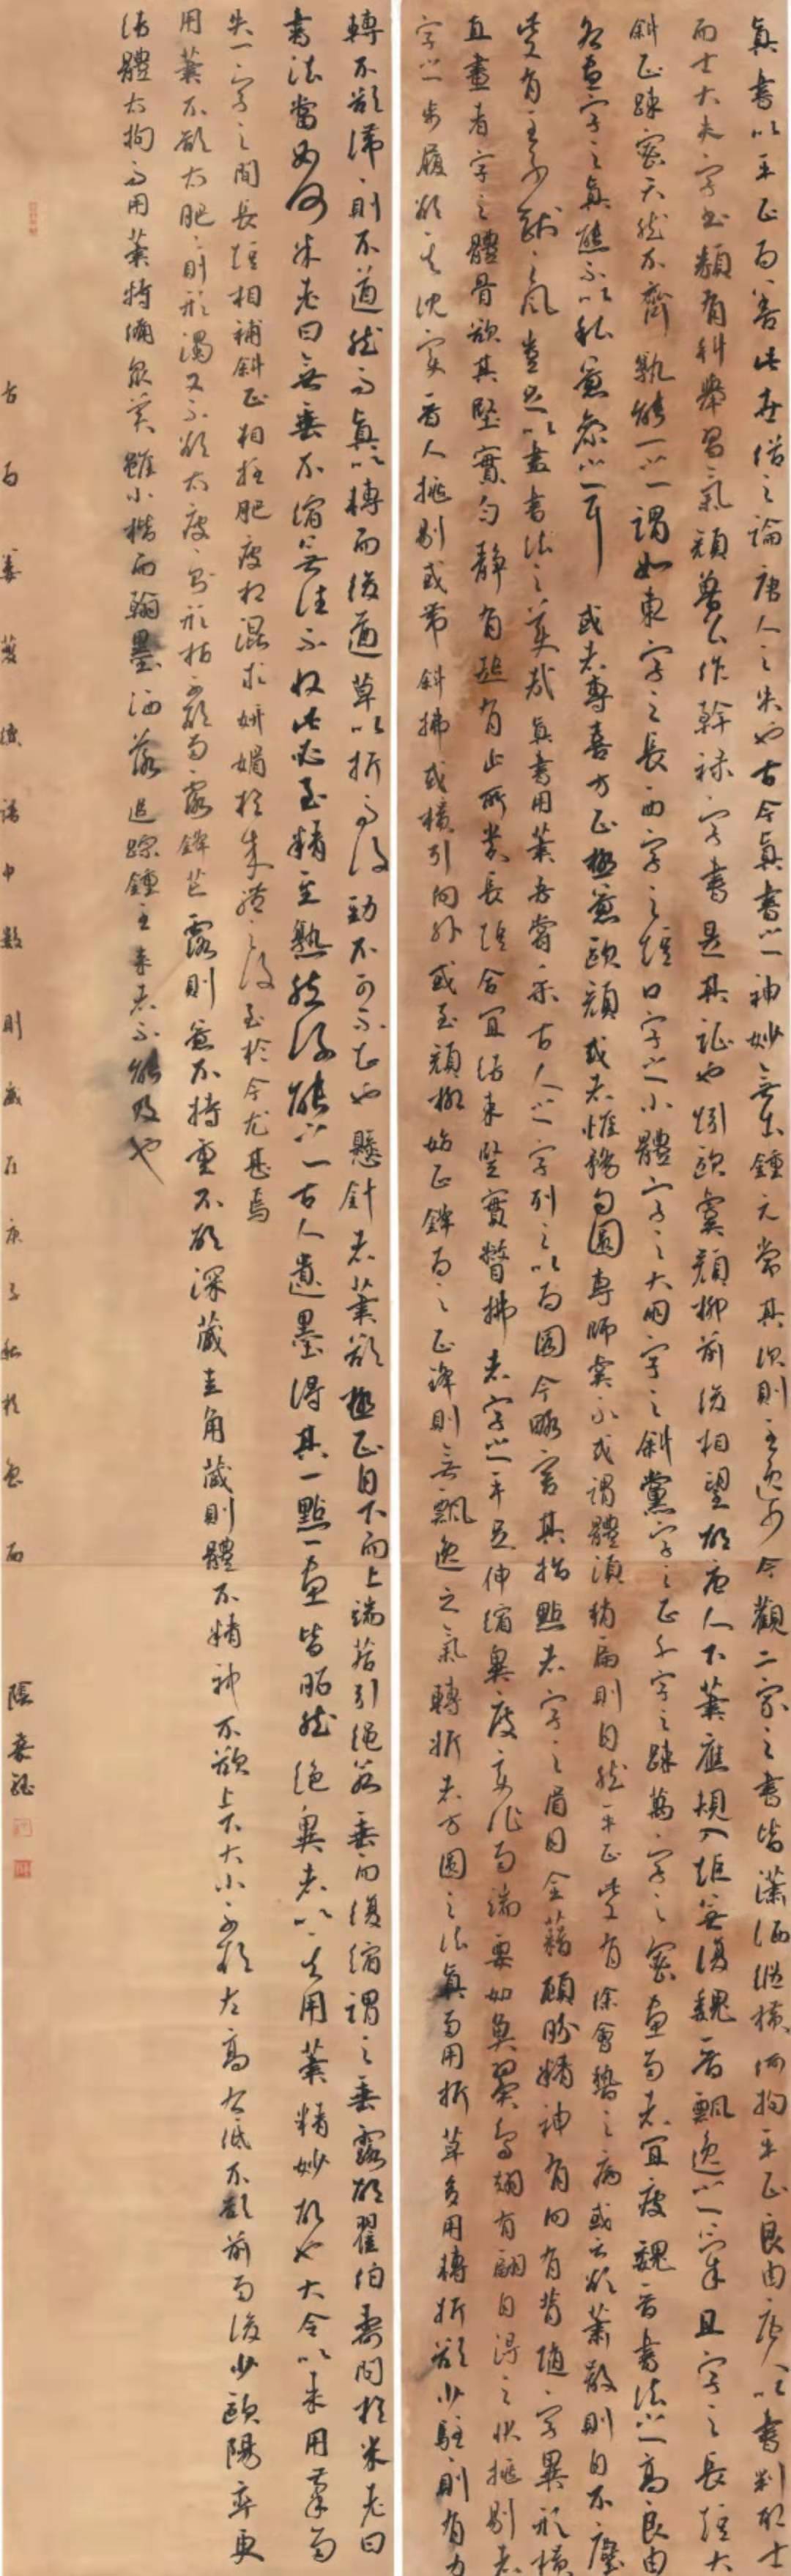 真書以平正為善此世俗之論唐人之失也古今真書之神妙無出鍾元常其次則王逸少今觀二家之書皆瀟洒縱橫何拘平正良由唐人以書判取士
而士大夫字書類有科舉習氣顏魯公作干祿字書是其證也矧歐虞顏柳前後相望故唐人下筆應規入矩無復魏晉飄逸之氣且字之長短大
斜正疎密天然不齊孰能一之謂如東字之長西字之短口字之小體字之大朋字之斜黨字之正千字之疎萬字之密畫多者宜瘦魏晉書法之高良由
各盡字之真態不以私意參之耳 或者專喜方正極意歐顏或者惟務勻圓專師虞永或謂體須稍扁則自然平正此又有徐會稽之病或云欲蕭散則自不塵
此又有王子敬之風豈足以盡書法之美哉真書用筆吾嘗采古人之字列之以為圖今略言其指點者字之眉目全藉顧盼精神有向有背隨字異形橫
直畫者字之體骨欲其堅實勻靜有起有止所貴長短合宜結束堅實撇捺者字之手足伸縮異度變化多端要如魚翼鳥翅有翩翩自得之狀挑剔者
字之步履欲其沈實晉人挑剔或帶斜拂或橫引向外或至顏柳始正鋒為之正鋒則無飄逸之氣轉折者方圓之法真多用折草多用轉折欲少駐則有力
轉不欲滯滯則不遒然而真以轉而後遒草以折而後勁不可不知也懸針者筆欲極正自上而下端若引繩若垂而復縮謂之垂露故翟伯壽問於米老曰
書法當如何米老曰無垂不縮無往不收此必至精至熟然後能之古人遺墨得其一點一畫皆昭然絕異者以其用筆精妙故也大令以來用筆多
失一字之間長短相補斜正相拄肥瘦相混求妍媚於成體之後至於今尤甚焉
用筆不欲太肥肥則形濁又不欲太瘦瘦則形枯不欲多露鋒芒露則意不持重不欲深藏圭角藏則體不精神不欲上大下小不欲左高右低不欲前多後少歐陽率更
結體太拘而用筆特備眾美雖小楷而翰墨洒落追踪鍾王來者不能及也
右為姜夔續譜中數則歲在庚子秋於